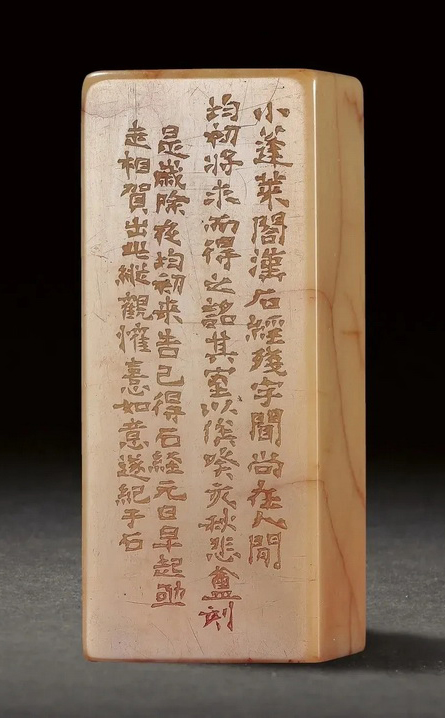 小蓬萊閣漢石經殘字聞尚在人間
均初將求而得之銘其室以俟癸亥秋悲盦刻
是歲除夜均初來告已得石經元旦早起亟
走相賀出此縱觀懽憙如意遂紀于石